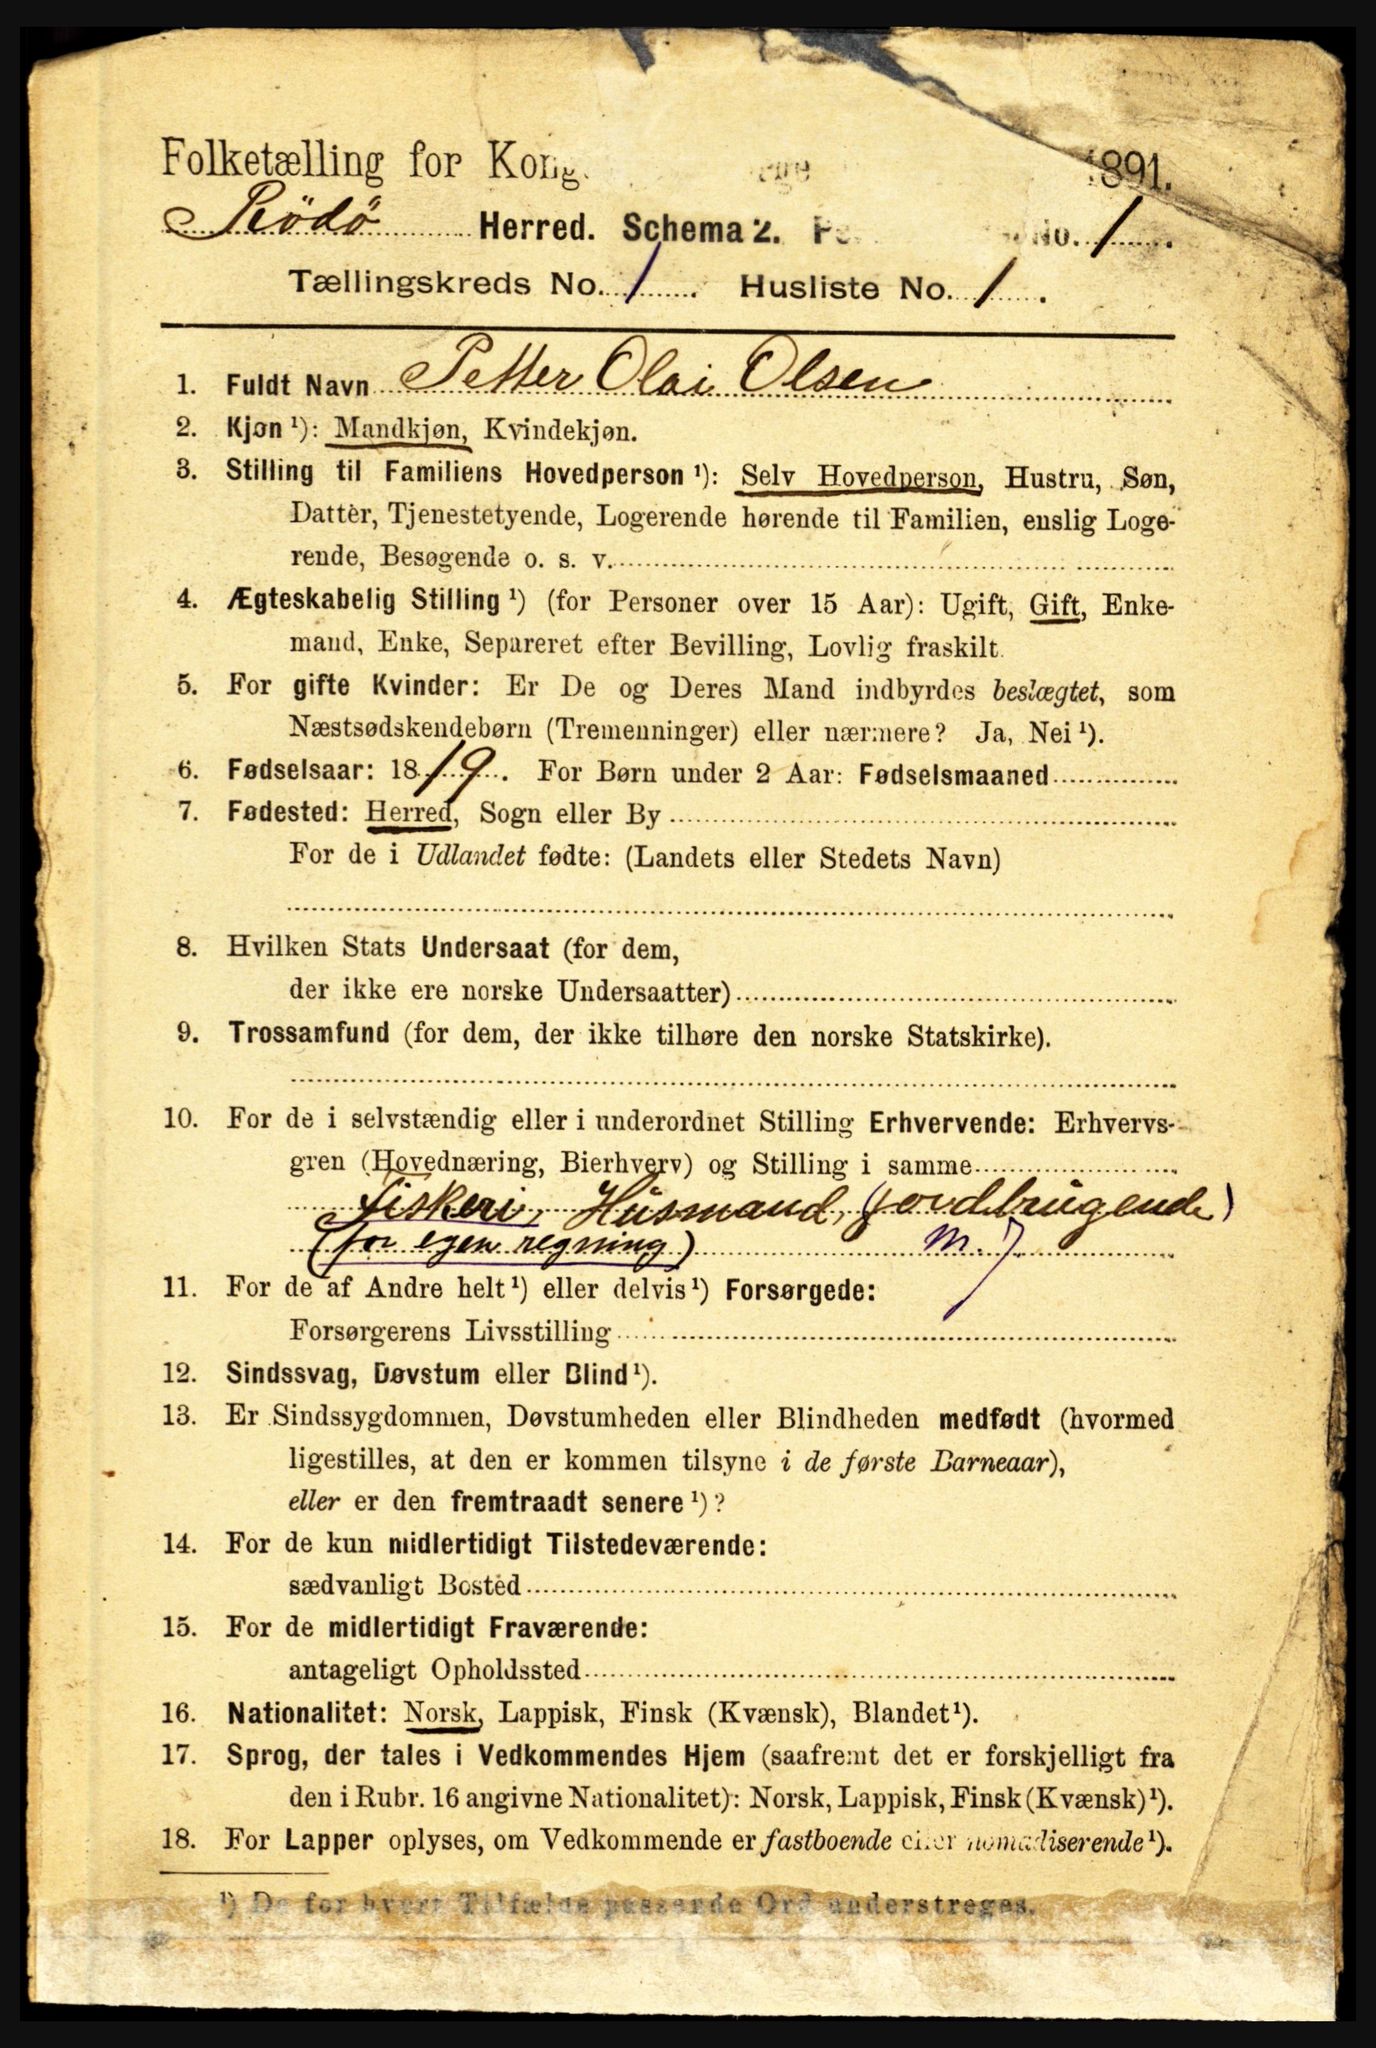 Folketælling for Kong 1891.
Rödö Herred. Schema 2. No. 1.
Tællingskreds No. 1. Husliste No. 1.
1. Fuldt Navn Petter Olai Olsen
2. Kjøn ¹): Mandkjøn, Kvindekjøn.
3. Stilling til Familiens Hovedperson ¹): Selv Hovedperson, Hustru, Søn,
Datter, Tjenestetyende, Logerende hørende til Familien, enslig Loge-
rende, Besøgende o. s. v.
4. Ægteskabelig Stilling ¹) (for Personer over 15 Aar): Ugift, Gift, Enke-
mand, Enke, Separeret efter Bevilling, Lovlig fraskilt.
5. For gifte Kvinder: Er De og Deres Mand indbyrdes beslægtet, som
Næstsødskendebørn (Tremenninger) eller nærmere? Ja, Nei ¹).
6. Fødselsaar: 1819. For Børn under 2 Aar: Fødselsmaaned
7. Fødested: Herred, Sogn eller By
For de i Udlandet fødte: (Landets eller Stedets Navn)
8. Hvilken Stats Undersaat (for dem,
der ikke ere norske Undersaatter)
9. Trossamfund (for dem, der ikke tilhøre den norske Statskirke).
10. For de i selvstændig eller i underordnet Stilling Erhvervende: Erhvervs-
gren (Hovednæring, Bierhverv) og Stilling i samme
Fiskeri, Husmand, (jordbrugende)
(for egen regning) m. J
11. For de af Andre helt ¹) eller delvis ¹) Forsørgede:
Forsørgerens Livsstilling
12. Sindssvag, Døvstum eller Blind ¹).
13. Er Sindssygdommen, Døvstumheden eller Blindheden medfødt (hvormed
ligestilles, at den er kommen tilsyne i de første Barneaar),
eller er den fremtraadt senere ¹)?
14. For de kun midlertidigt Tilstedeværende:
sædvanligt Bosted
15. For de midlertidigt Fraværende:
antageligt Opholdssted
16. Nationalitet: Norsk, Lappisk, Finsk (Kvænsk), Blandet ¹).
17. Sprog, der tales i Vedkommendes Hjem (saafremt det er forskjelligt fra
den i Rubr. 16 angivne Nationalitet): Norsk, Lappisk, Finsk (Kvænsk) ¹).
18. For Lapper oplyses, om Vedkommende er fastboende eller nomadiserende ¹).
¹) De for hvert Tilfælde passende Ord understreges.